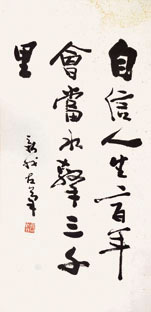 自信人生二百年
會當水擊三千
里